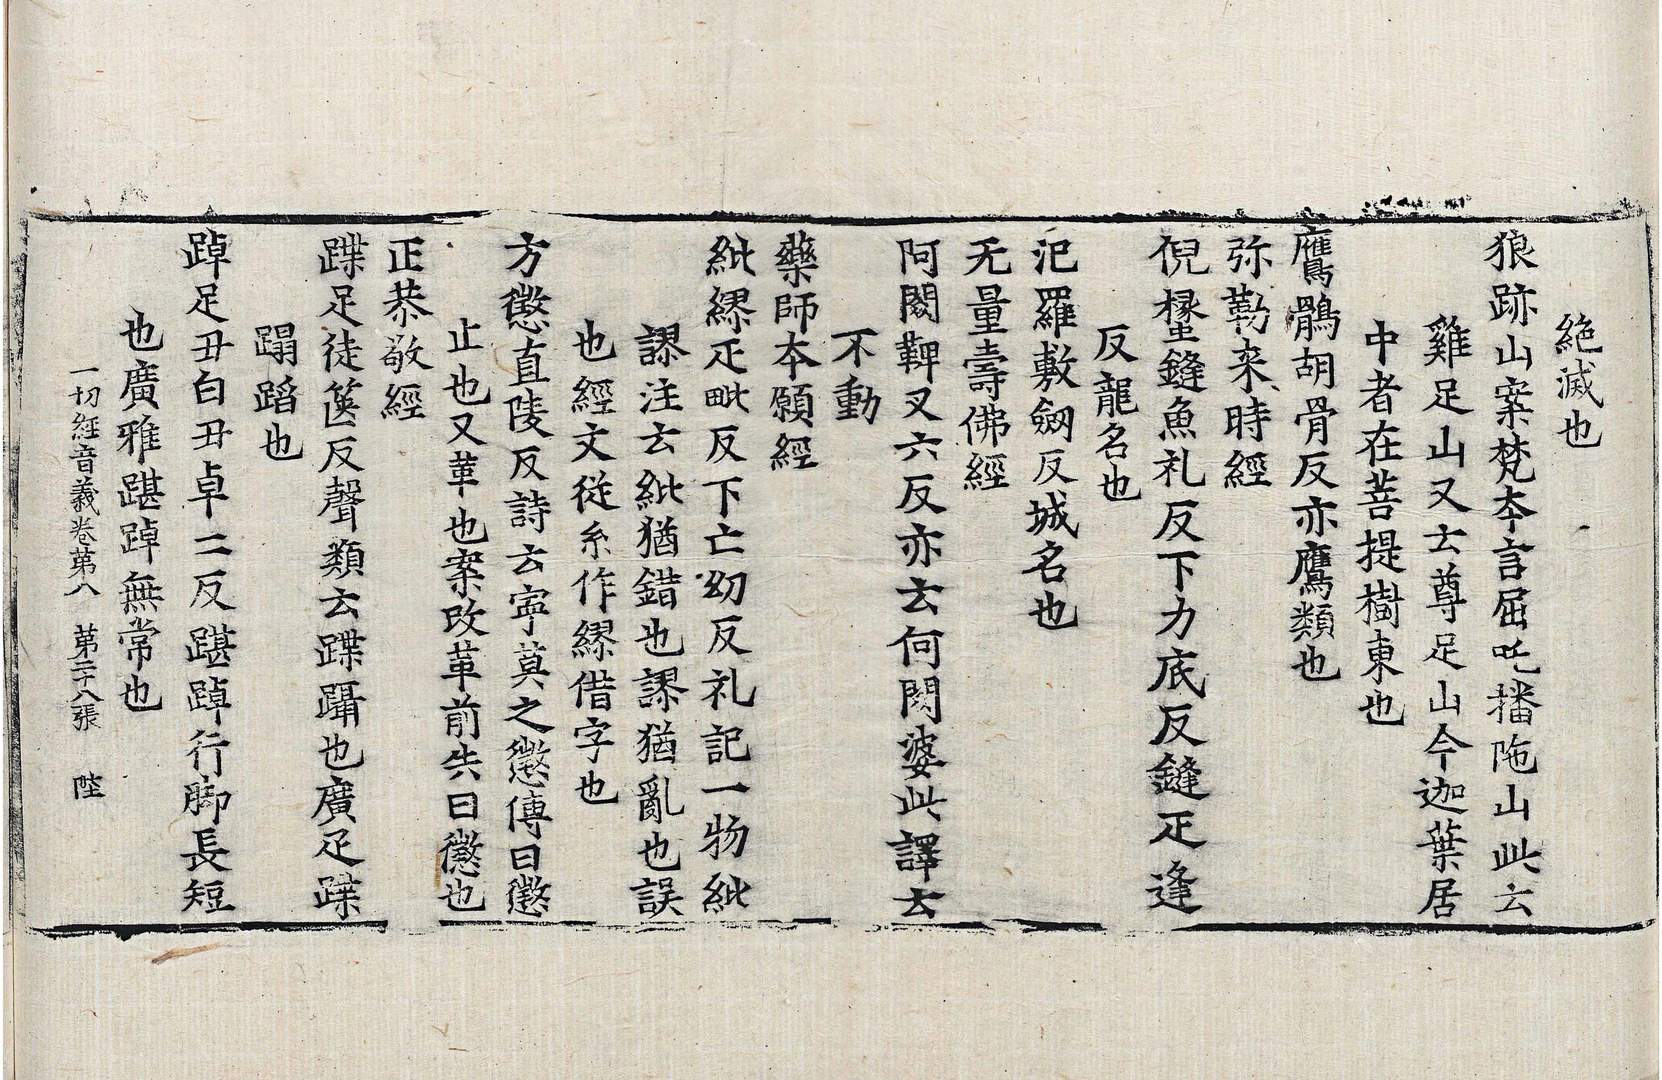 絶滅也
狼跡山案梵夲言屈吒播陁山此云
雞足山又云尊足山今迦葉居
中者在菩提樹東也
鷹鶻胡骨反亦鷹類也
弥勒来時經
倪樓鏠魚礼反下力底反鏠疋逢
反龍名也
汜羅敷劒反城名也
无量壽佛經
阿閦鞞叉六反亦云何閦婆此譯云
不動
藥師夲願經
紕繆疋毗反下亡幼反礼記一物紕
謬注云紕猶錯也謬猶亂也誤
也經文從糸作繆借字也
方懲直陵反詩云寕莫之懲傳曰懲
止也又革也案改革前失曰懲也
正恭敬經
蹀足徒篋反聲類云蹀躡也廣疋蹀
蹋蹈也
踔足丑白丑卓二反踸踔行脚長短
也廣雅踸踔無常也
一切經音義卷第八 第二十八張 陛